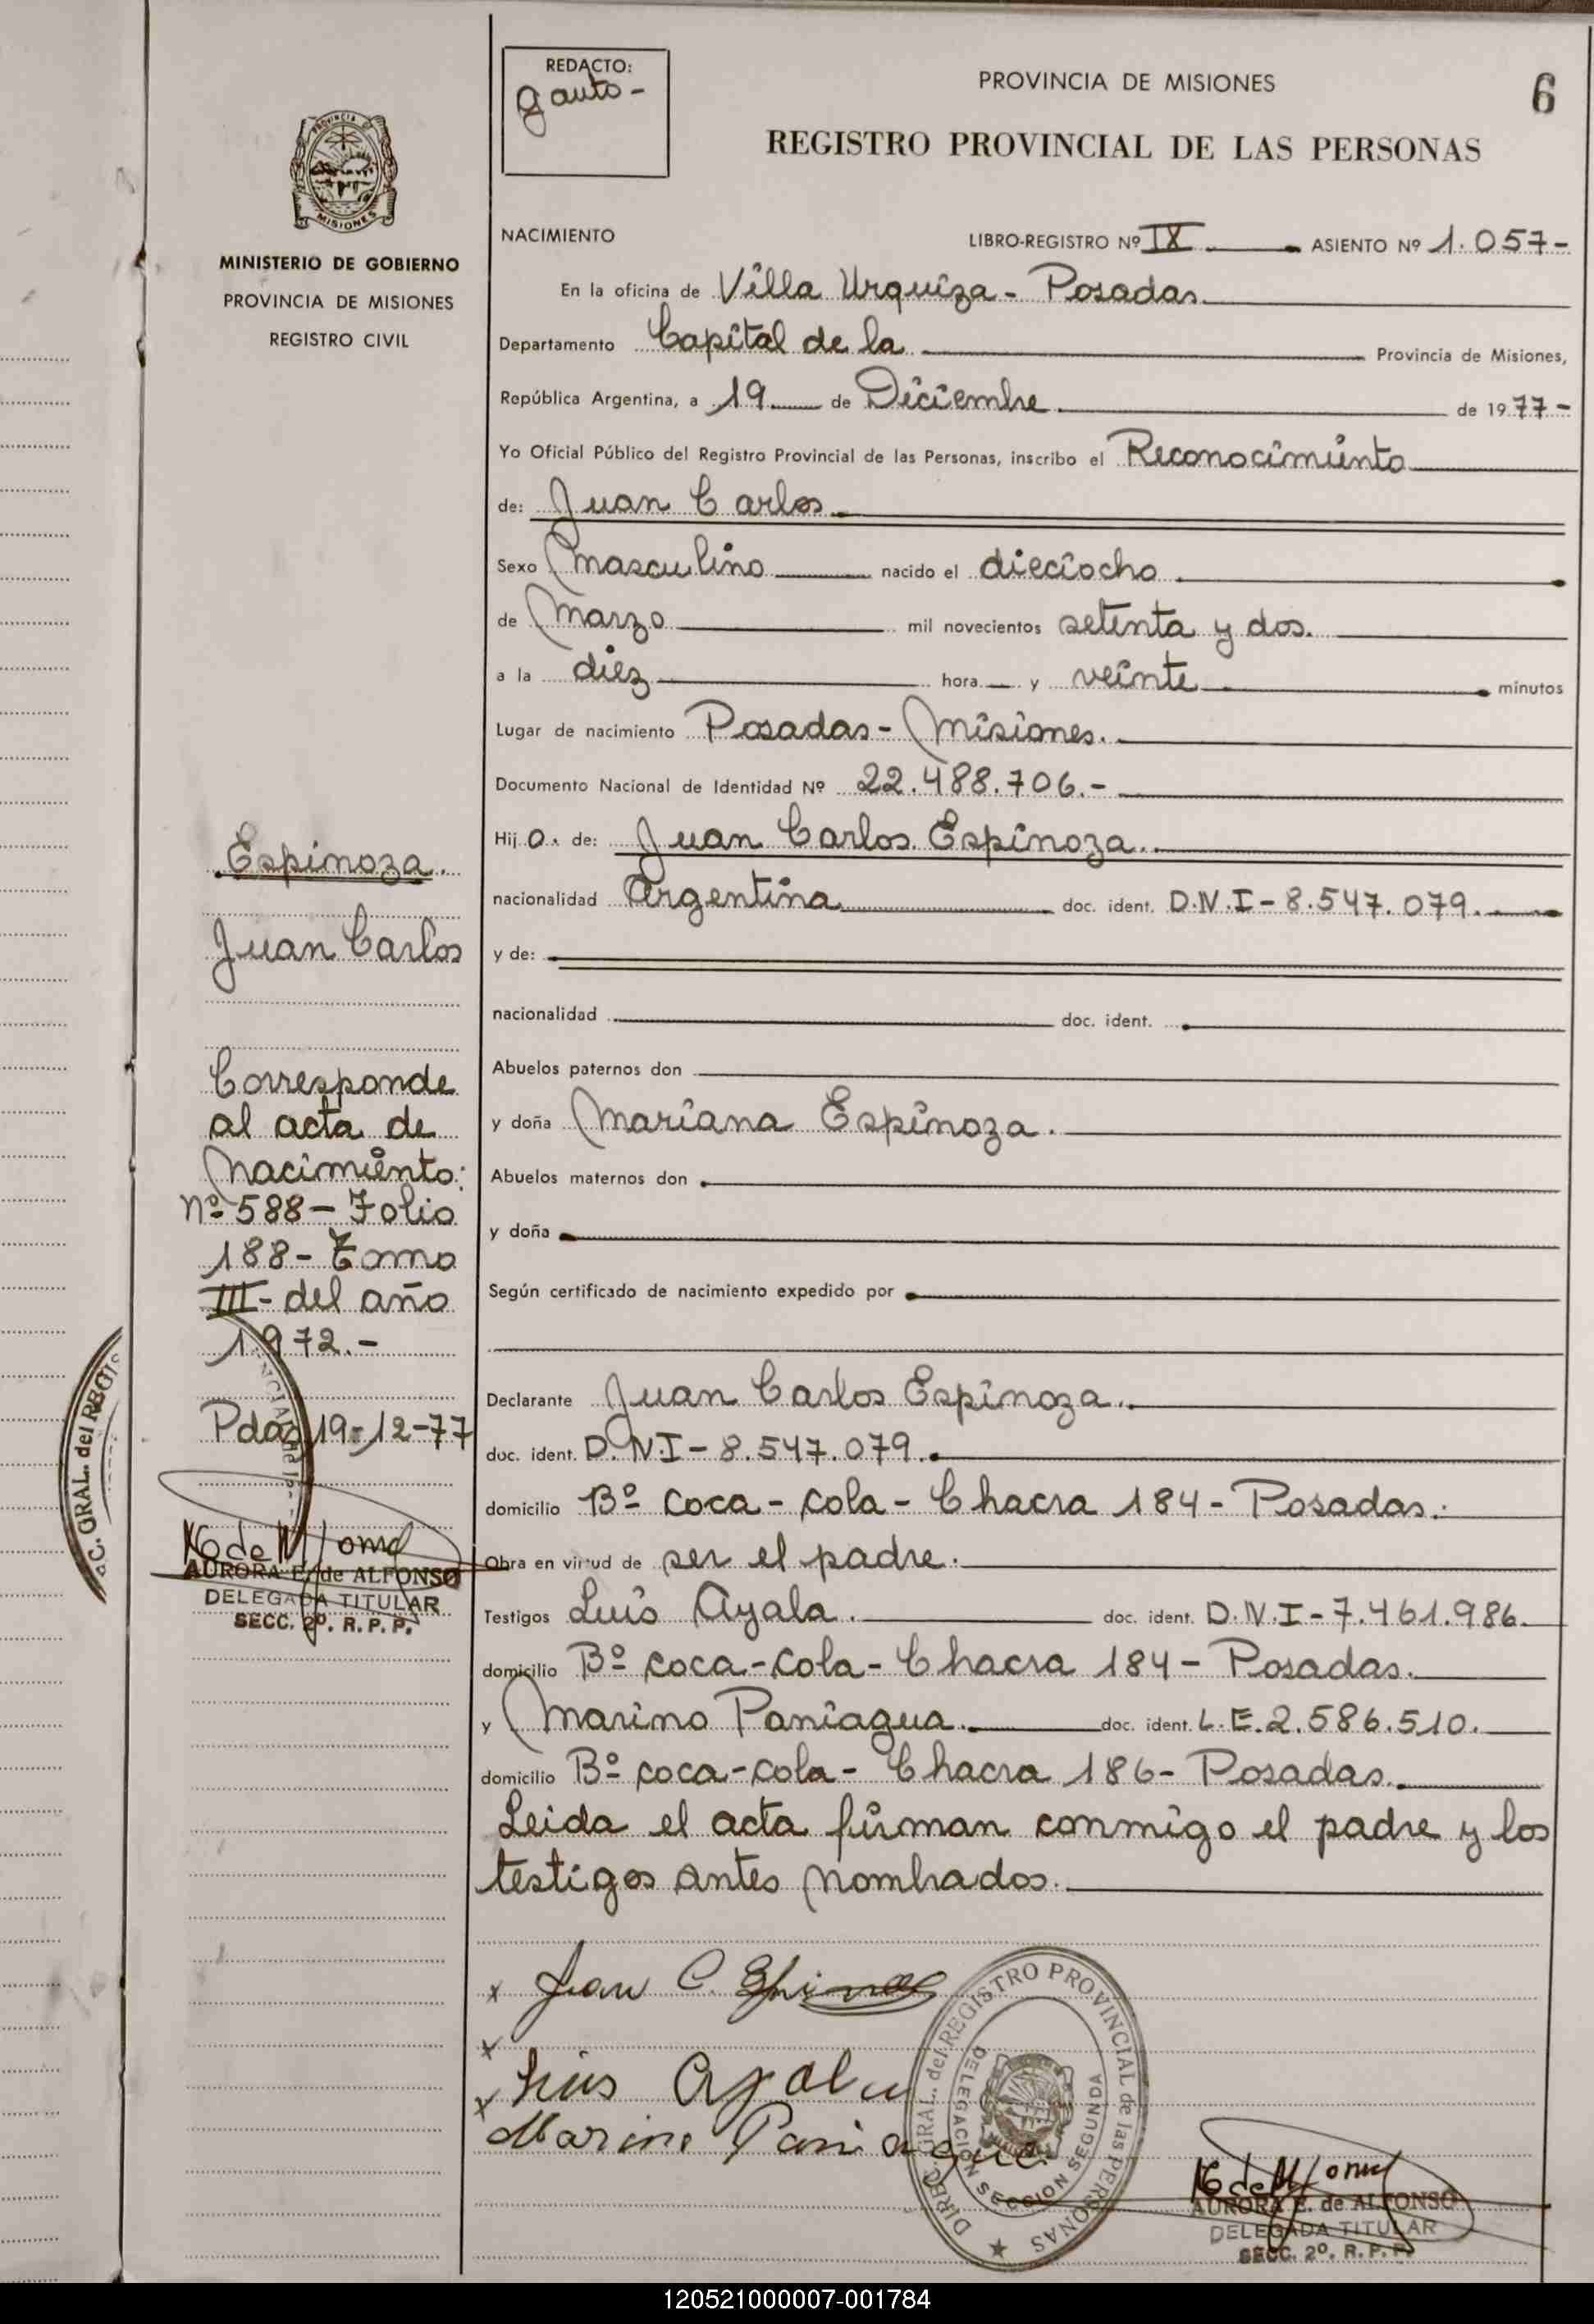 REDACTO:
Gauto-
PROVINCIA DE MISIONES
6
REGISTRO PROVINCIAL DE LAS PERSONAS
PROVINCIA
MISIONES
MINISTERIO DE GOBIERNO
PROVINCIA DE MISIONES
REGISTRO CIVIL
NACIMIENTO LIBRO-REGISTRO Nº IX ASIENTO Nº 1.057-
En la oficina de Villa Urquiza - Posadas
Departamento Capital de la Provincia de Misiones,
República Argentina, a 19 de Diciembre de 1977-
Yo Oficial Público del Registro Provincial de las Personas, inscribo el Reconocimiento
de: Juan Carlos
Sexo masculino nacido el dieciocho
de Marzo mil novecientos setenta y dos.
a la diez hora y veinte minutos
Lugar de nacimiento Posadas - Misiones.
Documento Nacional de Identidad Nº 22.488.706.-
Hijo. de: Juan Carlos Espinoza.
nacionalidad Argentina doc. ident. D.N.I- 8.547.079.
y de:
nacionalidad doc. ident.
Abuelos paternos don
y doña Mariana Espinoza.
Abuelos maternos don
y doña
Según certificado de nacimiento expedido por
Declarante Juan Carlos Espinoza.
doc. ident. D.N.I- 8.547.079.
domicilio Bº coca-cola- Chacra 184- Posadas.
Obra en virtud de ser el padre.
Testigos Luis Ayala. doc. ident. D.N.I-7.461.986.
domicilio Bº coca-cola- Chacra 184- Posadas.
y Marino Paniagua. doc. ident. L.E.2.586.510.
domicilio Bº coca-cola- Chacra 186- Posadas.
Leida el acta firman conmigo el padre y los
testigos antes nombrados.
Espinoza.
Juan Carlos
Corresponde
al acta de
Nacimiento:
Nº 588- Folio
188- Tomo
III- del año
1972.-
Pdas 19-12-77
GRAL. del REGIS
AURORA E. de ALFONSO
DELEGADA TITULAR
SECC. 2º. R. P. P.
Juan C. Espinoza
Luis Ayala
Marino Paniagua
DIREC. GRAL. del REGISTRO PROVINCIAL de las PERSONAS
DELEGACION SECCION SEGUNDA
AURORA E. de ALFONSO
DELEGADA TITULAR
SECC. 2º. R. P. P.
120521000007-001784